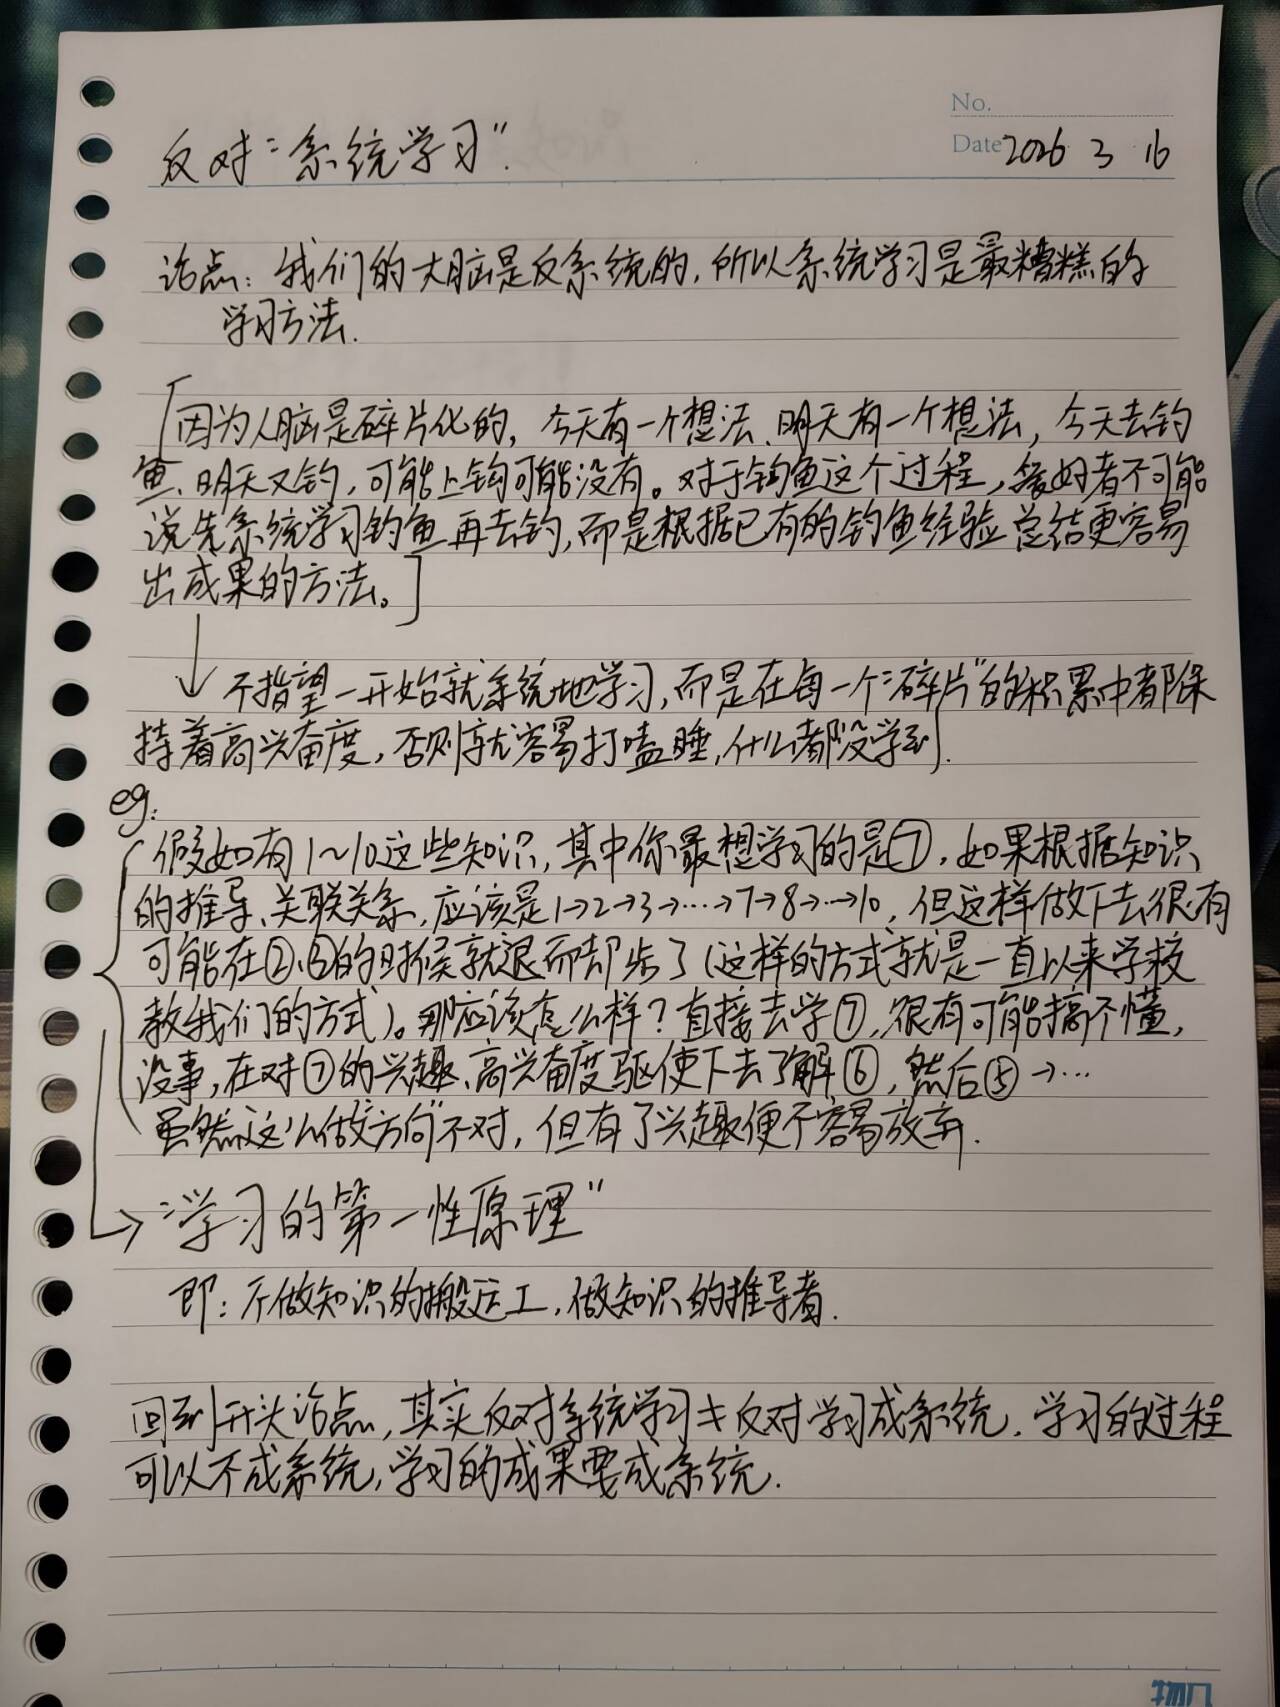 No.
Date 2026 3 16
反对“系统学习”.
论点: 我们的大脑是反系统的, 所以系统学习是最糟糕的
学习方法.
「因为人脑是碎片化的, 今天有一个想法、明天有一个想法, 今天去钓
鱼、明天又钓, 可能上钩可能没有。对于钓鱼这个过程, 爱好者不可能
说先系统学习钓鱼再去钓, 而是根据已有的钓鱼经验总结更容易
出成果的方法。]
↓ 不指望一开始就系统地学习, 而是在每一个“碎片”的积累中都保
持着高兴奋度, 否则就容易打瞌睡, 什么都没学到.
eg:
假如有1~10这些知识, 其中你最想学习的是⑦, 如果根据知识
的推导、关联关系, 应该是1→2→3→…→7→8→…→10, 但这样做下去很有
可能在②、③的时候就退而却步了(这样的方式就是一直以来学校
教我们的方式)。那应该怎么样? 直接去学⑦, 很有可能搞不懂,
没事, 在对⑦的兴趣、高兴奋度驱使下去了解⑥, 然后⑤→…
虽然这么做“方向”不对, 但有了兴趣便不容易放弃.
→“学习的第一性原理”
即: 不做知识的搬运工, 做知识的推导者.
回到开头论点, 其实反对系统学习≠反对学习成系统. 学习的过程
可以不成系统, 学习的成果要成系统.